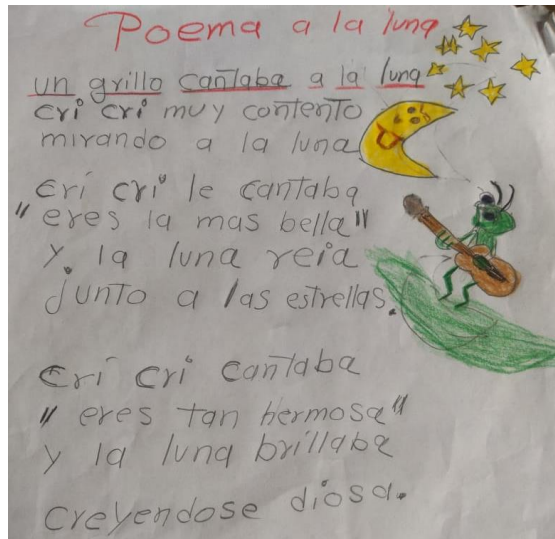 Poema a la luna
un grillo cantaba a la luna
cri cri muy contento
mirando a la luna
cri cri le cantaba
"eres la mas bella"
y la luna reia
junto a las estrellas.
cri cri cantaba
"eres tan hermosa"
y la luna brillaba
creyendose diosa.